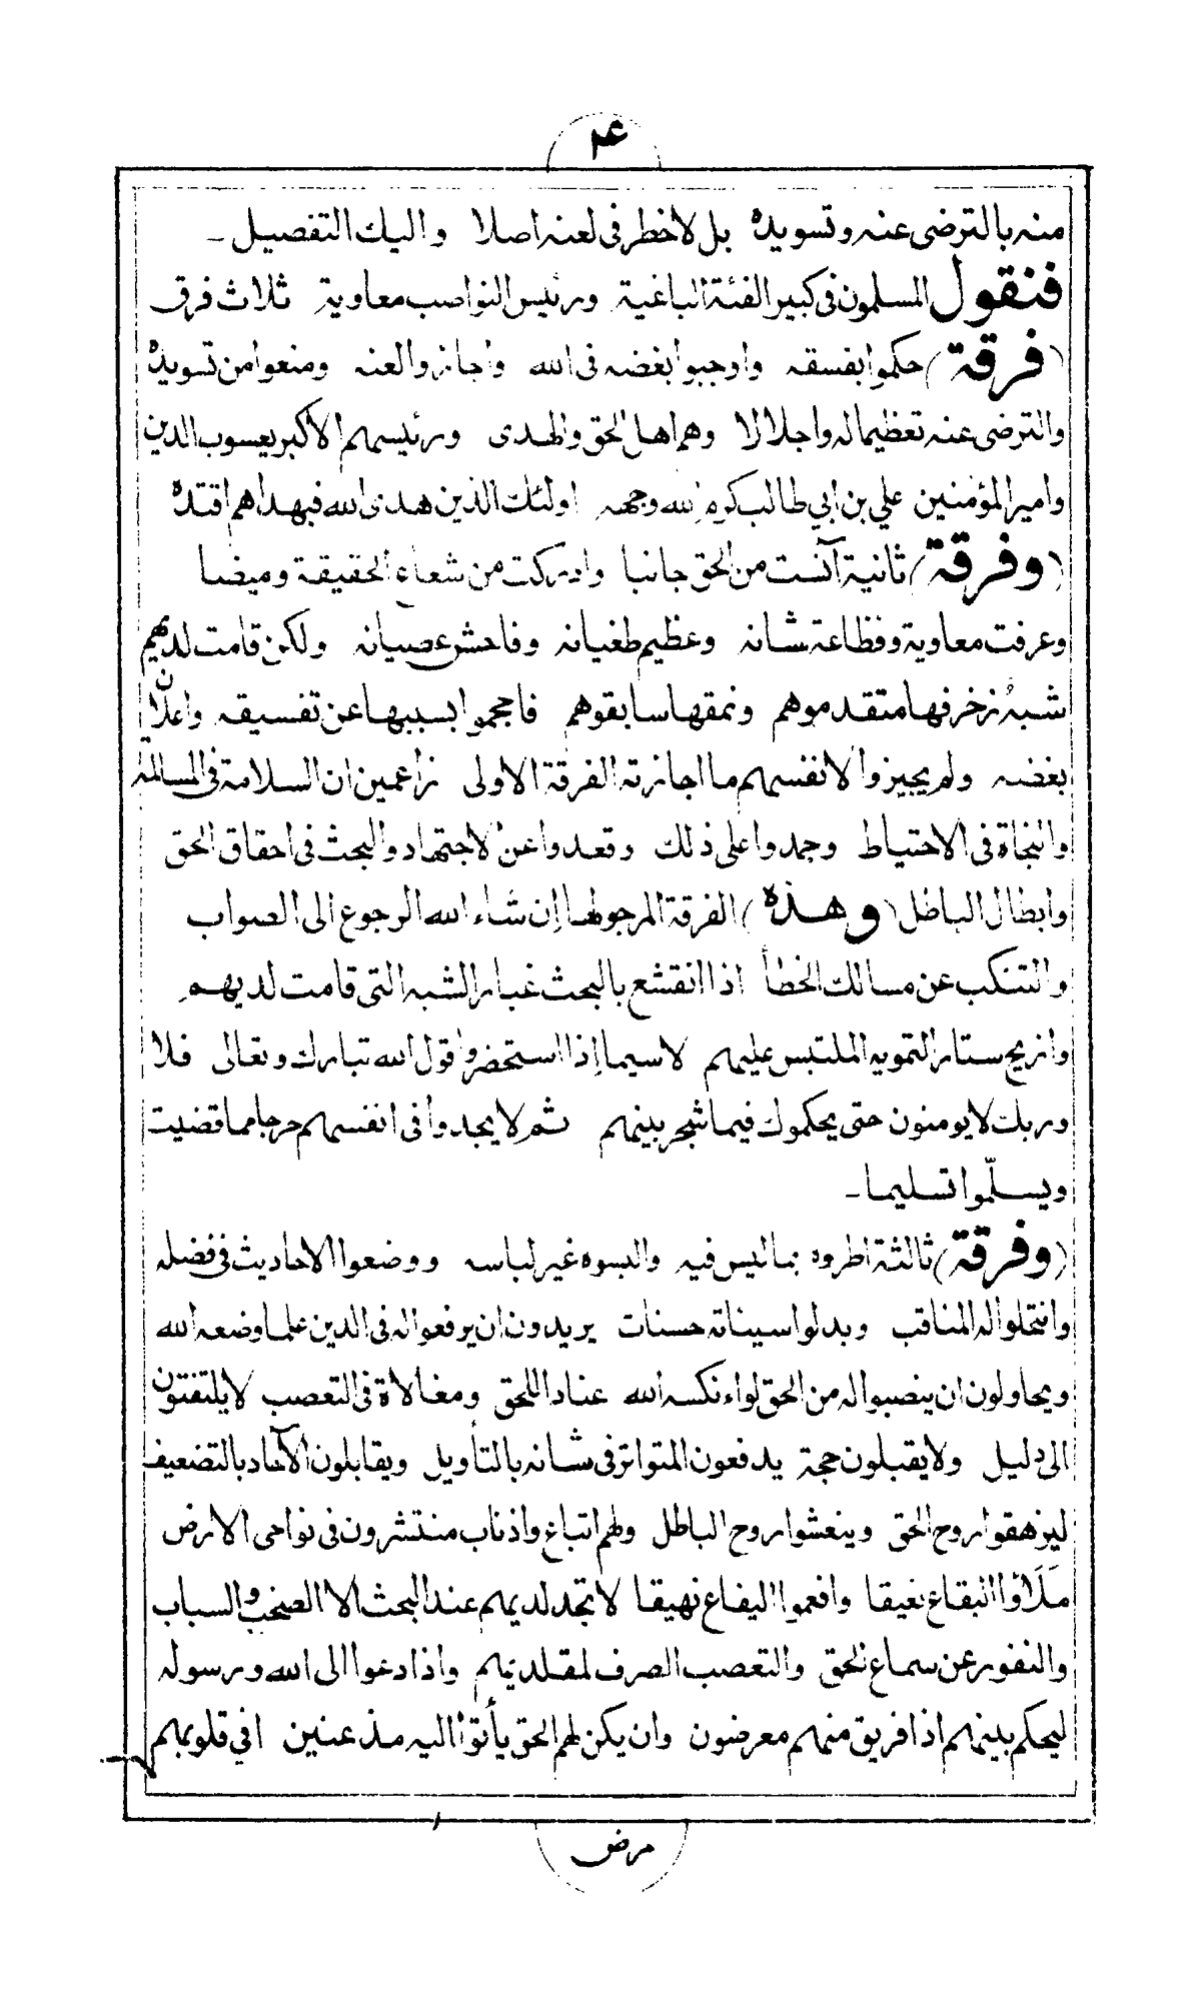 ۴
منه بالترضى عنه وتسويده بل لا خطر فى لعنه اصلا واليك التفصيل ـ
فنقول المسلمون فى كبير الفئة الباغية ورئيس النواصب معاوية ثلاث فرق
(فرقة) حكموا بفسقه واوجبوا بغضه فى الله واجازوا لعنه ومنعوا من تسويده
والترضى عنه تعظيما له واجلالا وهم اهل الحق والهدى ورئيسهم الاكبر يعسوب الدين
وامير المؤمنين علي بن ابي طالب كرم الله وجهه اولئك الذين هدى الله فبهداهم اقتده
(وفرقة) ثانية آنست من الحق جانبا وادركت من شعاع الحقيقة وميضا
وعرفت معاوية وفظاعة شانه وعظيم طغيانه وفاحش عصيانه ولكن قامت لديهم
شبهُ زخرفها متقدموهم ونمقها سابقوهم فاحجموا بسببها عن تفسيقه واعلان
بغضه ولم يجيزوا لانفسهم ما اجازته الفرقة الاولى زاعمين ان السلامة فى المسالمة
والنجاة فى الاحتياط وجمدوا على ذلك وقعدوا عن الاجتهاد والبحث فى احقاق الحق
وابطال الباطل (وهذه) الفرقة المرجو لها اِن شاء الله الرجوع الى الصواب
والتنكب عن مسالك الخطأ اذا انقشع بالبحث غبار الشبه التى قامت لديهم
وازيح ستار التمويه الملتبس عليهم لاسيما اِذا استحضروا قول الله تبارك وتعالى فلا
وربك لا يومنون حتى يحكموك فيما شجر بينهم ثم لا يجدوا فى انفسهم حرجا مما قضيت
ويسلّموا تسليما ـ
(وفرقة) ثالثة اطروه بما ليس فيه والبسوه غير لباسه ووضعوا الاحاديث فى فضله
وانتحلوا له المناقب وبدلوا سيئاته حسنات يريدون ان يرفعوا له فى الدين علما وضعه الله
ويحاولون ان ينصبوا له من الحق لواء نكسه الله عنادا للحق ومغالاة فى التعصب لا يلتفتون
الى دليل ولا يقبلون حجة يدفعون المتواتر فى شانه بالتأويل ويقابلون الآحاد بالتضعيف
ليزهقوا روح الحق وينعشوا روح الباطل ولهم اتباع واذناب منتشرون فى نواحى الارض
مَلَاؤا البقاع نعيقا وافعموا اليفاع نهيقا لا تجد لديهم عند البحث الا الصخب والسباب
والنفور عن سماع الحق والتعصب الصرف لمقلديهم واذا دعوا الى الله ورسوله
ليحكم بينهم اذا فريق منهم معرضون وان يكن لهم الحق يأتوا اليه مذعنين افي قلوبهم
مرض